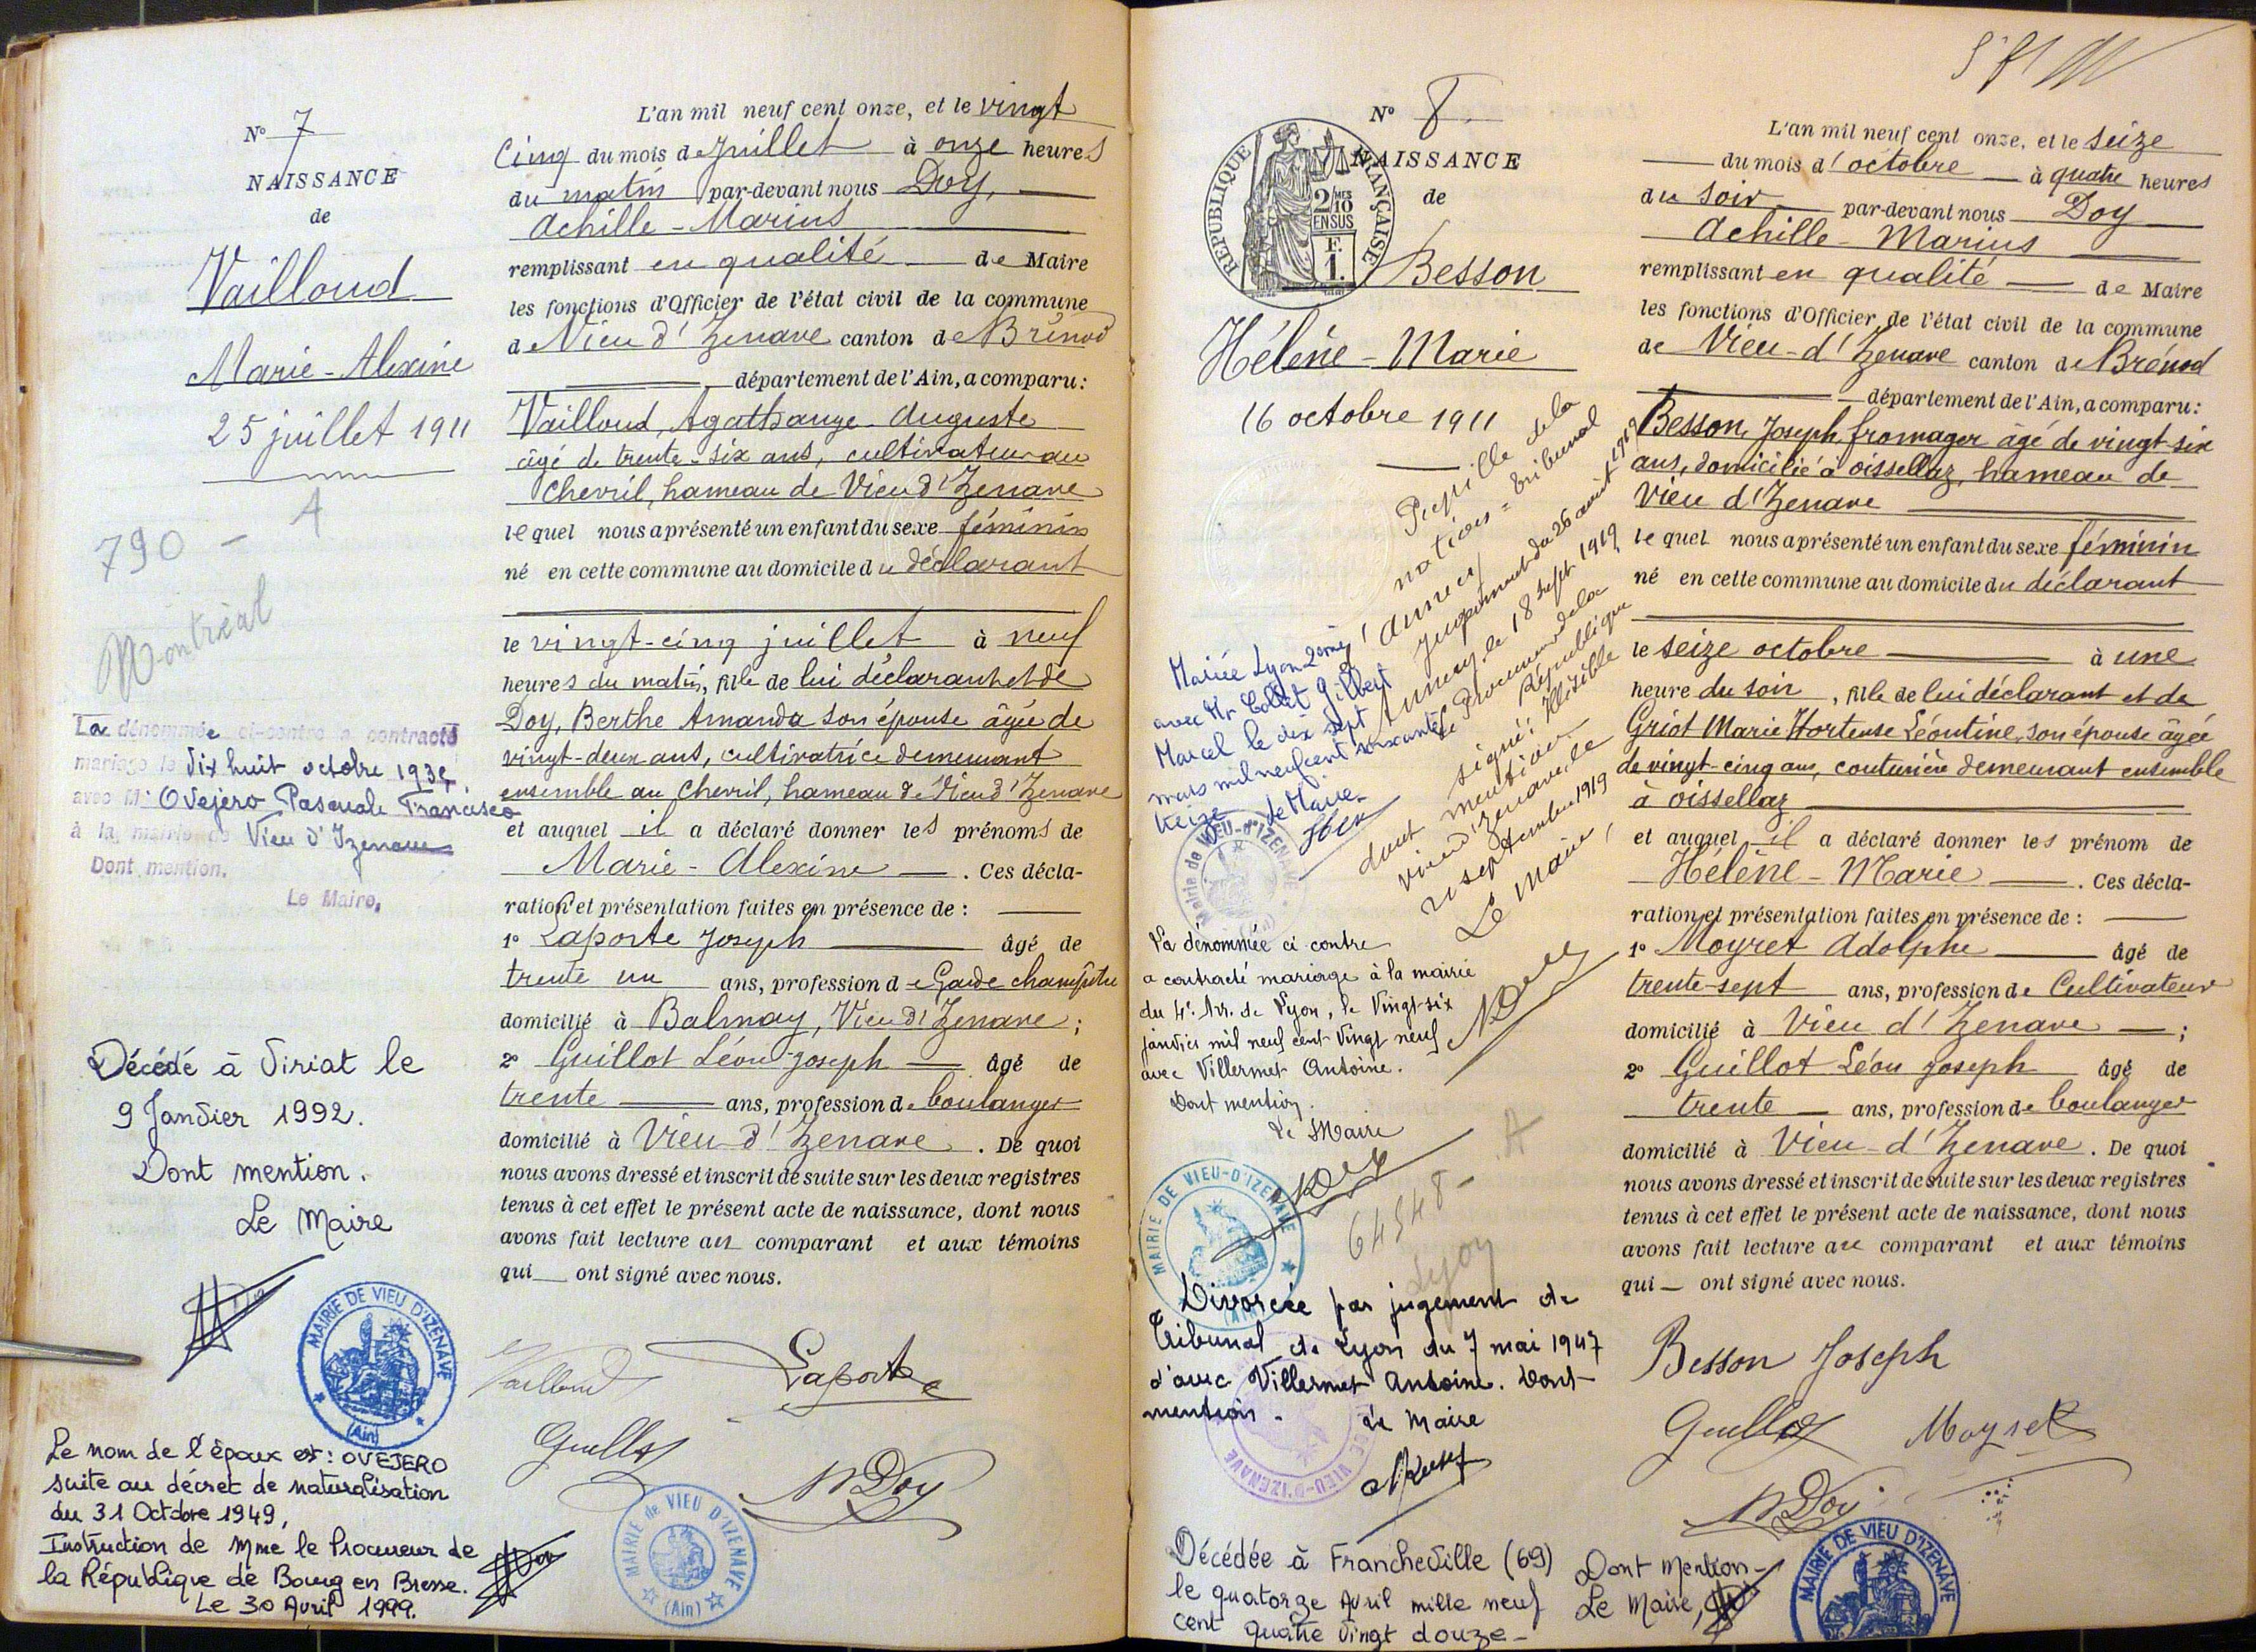 N° 7
NAISSANCE
de
Vailloud
Marie-Alexine
25 juillet 1911
790 - A
Montréal
La dénommée ci-contre a contracté
mariage le dix huit octobre 193
avec Mr Ovejero Pascuale Francisco
à la mairie de Vieu d'Izenave
Dont mention.
Le Maire,
Décédé à Viriat le
9 Janvier 1992.
Dont mention.
Le Maire
MAIRIE DE VIEU D'IZENAVE
(Ain)
Le nom de l'époux est : OVEJERO
suite au décret de naturalisation
du 31 Octobre 1949,
Instruction de Mme le Procureur de
la République de Bourg en Bresse.
Le 30 Avril 1999.
L'an mil neuf cent onze, et le vingt
cinq du mois de Juillet à onze heures
du matin par-devant nous Doy,
Achille-Marius
remplissant en qualité de Maire
les fonctions d'Officier de l'état civil de la commune
de Vieu d'Izenave canton de Brénod
département de l'Ain, a comparu :
Vailloud, Agathange Auguste
âgé de trente-six ans, cultivateur au
Chevril, hameau de Vieu d'Izenave
lequel nous a présenté un enfant du sexe féminin
né en cette commune au domicile du déclarant
le vingt-cinq juillet à neuf
heures du matin, fille de lui déclarant et de
Doy, Berthe Amanda son épouse âgée de
vingt-deux ans, cultivatrice demeurant
ensemble au Chevril, hameau de Vieu d'Izenave
et auquel il a déclaré donner les prénoms de
Marie-Alexine . Ces décla-
ration et présentation faites en présence de :
1° Laporte Joseph âgé de
trente un ans, profession de Garde champêtre
domicilié à Balmay, Vieu d'Izenave ;
2° Guillot Léon-Joseph âgé de
trente ans, profession de boulanger
domicilié à Vieu d'Izenave . De quoi
nous avons dressé et inscrit de suite sur les deux registres
tenus à cet effet le présent acte de naissance, dont nous
avons fait lecture au comparant et aux témoins
qui ont signé avec nous.
Vailloud Laporte
Guillot
A Doy
MAIRIE de VIEU D'IZENAVE
(Ain)
N° 8
NAISSANCE
de
RÉPUBLIQUE FRANÇAISE
2/10 MES
EN SUS
F.
1.
Besson
Hélène-Marie
16 octobre 1911
Pupille de la
nation - Tribunal
d'Annecy
Jugement du 26 août 1919
Annecy le 18 sept. 1919
Le Procureur de la
République
signé : Illisible
dont mention
Vieu d'Izenave, le
septembre 1919
Le Maire,
Mariée Lyon 2ème
avec Mr Collet Gilbert
Marcel le dix sept
mars mil neuf cent soixante
treize
Le Maire
Mairie de VIEU-d'IZENAVE
La dénommée ci contre
a contracté mariage à la mairie
du 4e Arr. de Lyon, le Vingt-six
janvier mil neuf cent Vingt neuf
avec Villermet Antoine.
Dont mention.
Le Maire
MAIRIE DE VIEU-D'IZENAVE
(AIN)
64548 - A
Lyon
Divorcée par jugement de
Tribunal de Lyon du 7 mai 1947
d'avec Villermet Antoine. Dont
mention.
Le Maire
VIEU-D'IZENAVE
Décédée à Francheville (69)
le quatorze Avril mille neuf
cent quatre vingt douze -
Dont Mention -
Le Maire,
L'an mil neuf cent onze, et le seize
du mois d'octobre à quatre heures
du soir par-devant nous Doy
Achille-Marius
remplissant en qualité de Maire
les fonctions d'Officier de l'état civil de la commune
de Vieu-d'Izenave canton de Brénod
département de l'Ain, a comparu :
Besson, Joseph, fromager âgé de vingt-six
ans, domicilié à oissellaz, hameau de
Vieu d'Izenave
lequel nous a présenté un enfant du sexe féminin
né en cette commune au domicile du déclarant
le seize octobre à une
heure du soir, fille de lui déclarant et de
Griot Marie Hortense Léontine, son épouse âgée
de vingt-cinq ans, couturière demeurant ensemble
à oissellaz
et auquel il a déclaré donner les prénom de
Hélène-Marie . Ces décla-
ration et présentation faites en présence de :
1° Moyret Adolphe âgé de
trente-sept ans, profession de Cultivateur
domicilié à Vieu d'Izenave ;
2° Guillot Léon Joseph âgé de
trente ans, profession de boulanger
domicilié à Vieu-d'Izenave . De quoi
nous avons dressé et inscrit de suite sur les deux registres
tenus à cet effet le présent acte de naissance, dont nous
avons fait lecture au comparant et aux témoins
qui ont signé avec nous.
Besson Joseph
Guillot Moyret
A Doy
MAIRIE DE VIEU D'IZENAVE